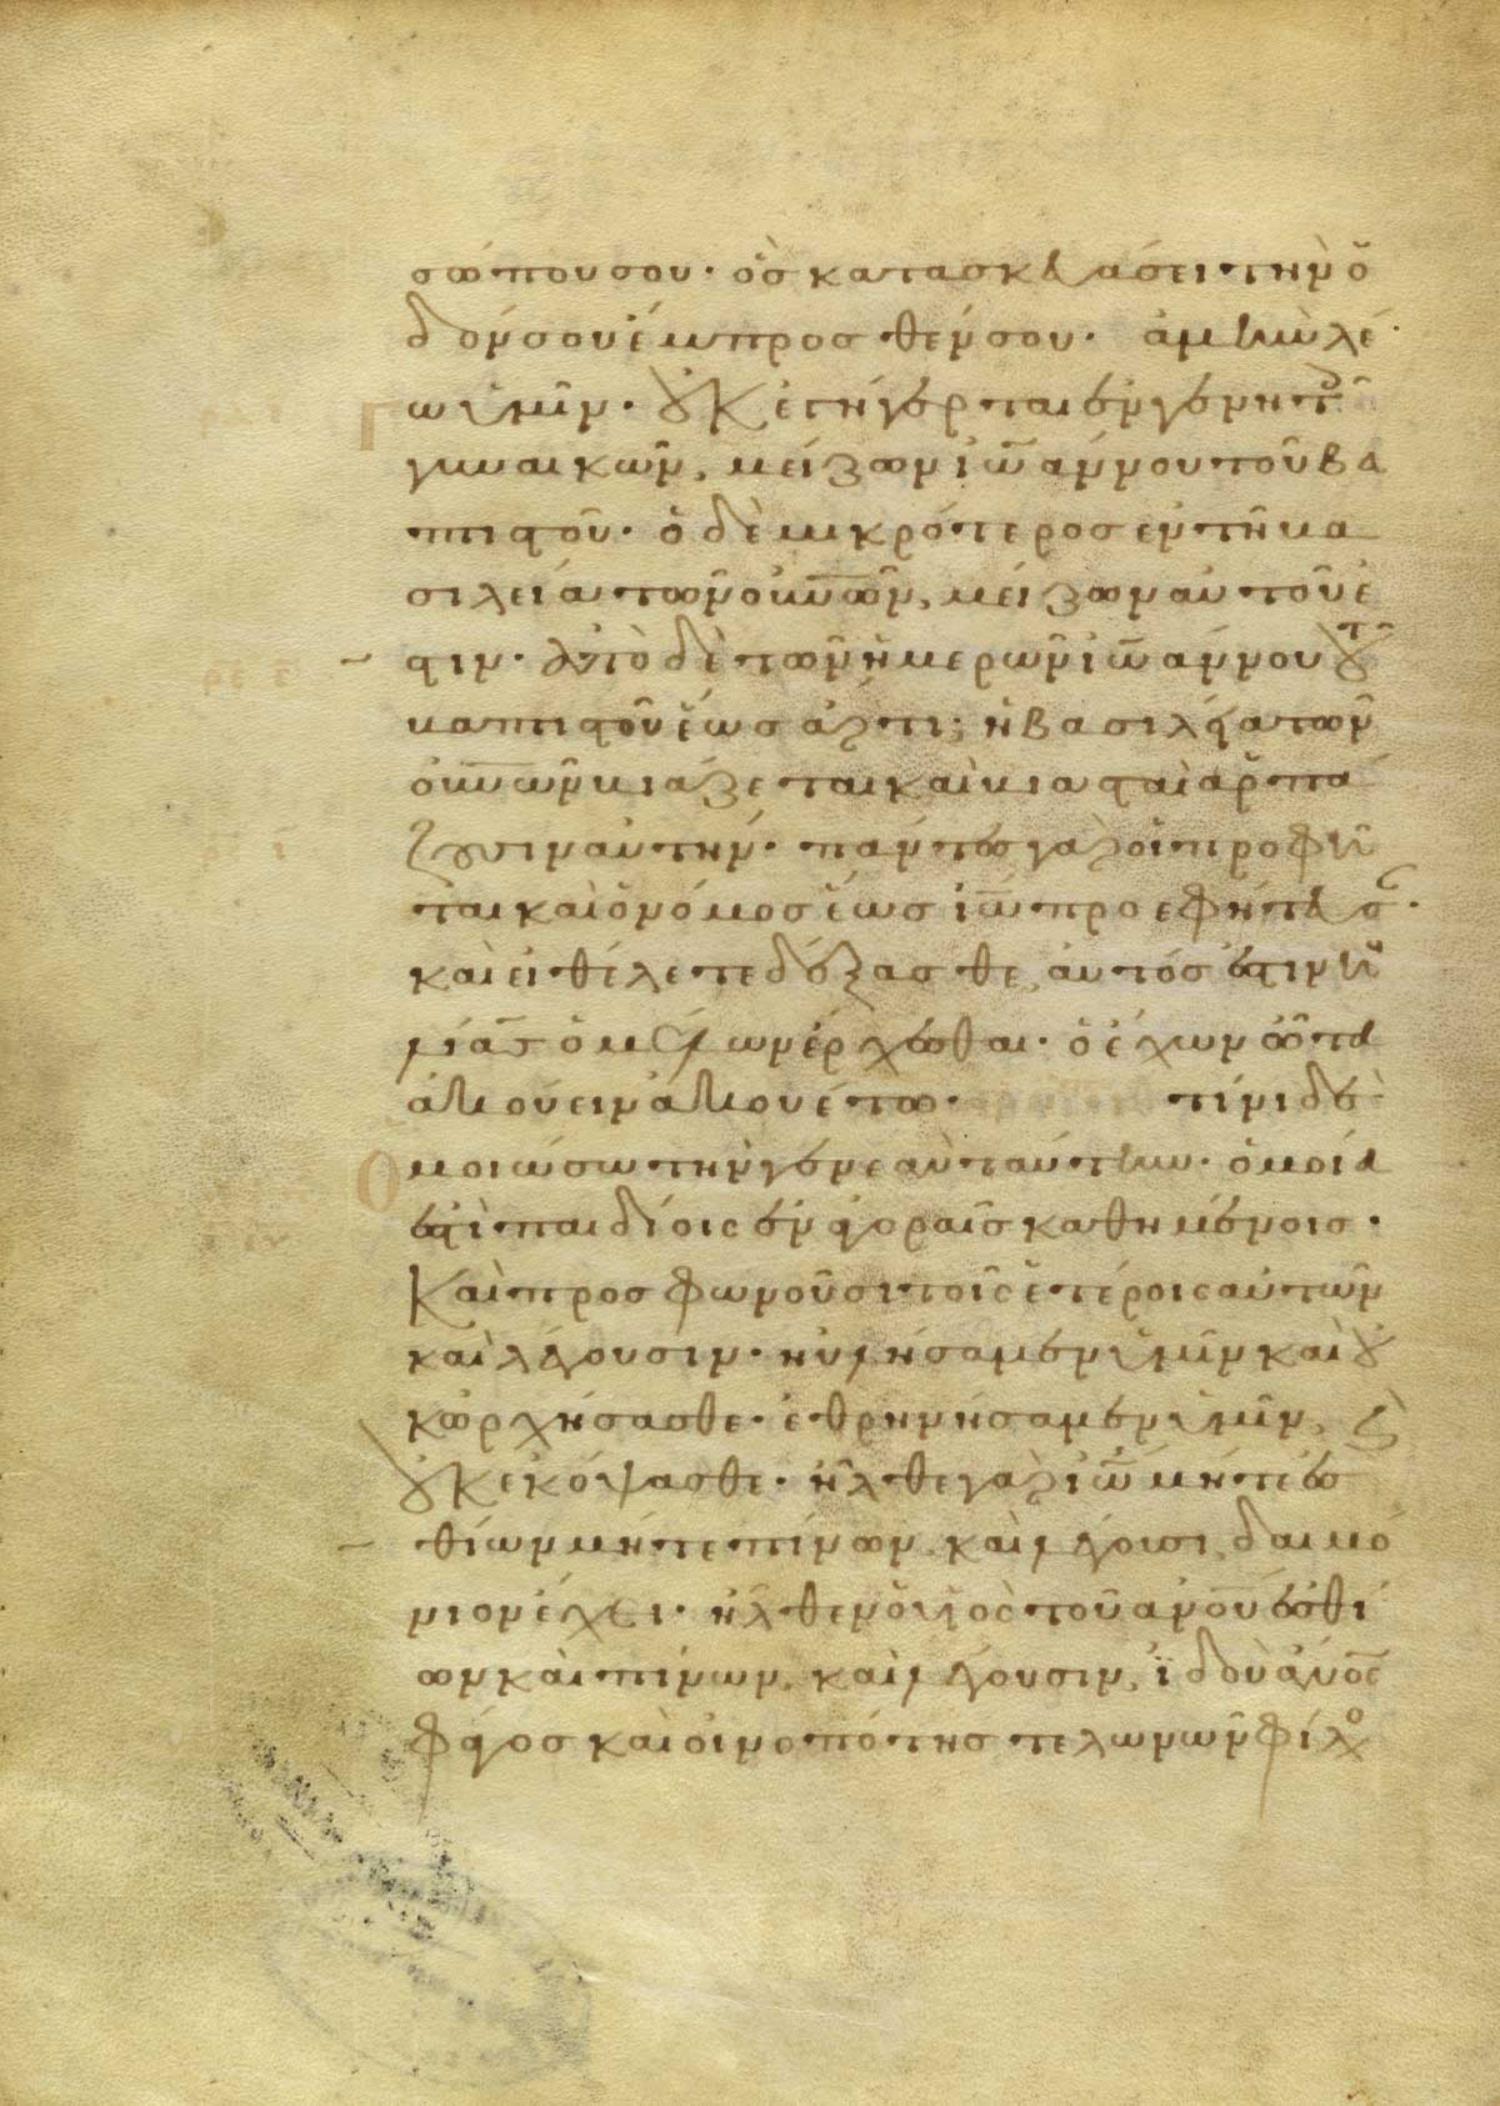 σώπου σου· ὃς κατασκευάσει τὴν ὁ
δόν σου ἔμπροσθέν σου· ἀμὴν λέ
ω ὑμῖν· οὐκ ἐγήγερται ἐν γεννητοῖ
γυναικῶν, μείζων ἰω̅άννου τοῦ βα
πτιστοῦ· ὁ δὲ μικρότερος ἐν τῆ βα
σιλεία τῶν οὐν̅ῶν, μείζων αὐτοῦ ἐ
στιν· ἀπὸ δὲ τῶν ἡμερῶν ἰω̅άννου τοῦ
βαπτιστοῦ ἕως ἄρτι; ἡ βασιλεία τῶν
οὐν̅ῶν βιάζεται καὶ βιασταὶ ἁρπά
ζουσιν αὐτήν· πάντες γὰρ οἱ προφῆ
ται καὶ ὁ νόμος ἕως ἰω̅ προεφήτευσ·
καὶ εἰ θέλετε δέξασθε, αὐτός ἐστιν ἠ
λίας ὁ μέλλων ἔρχεσθαι· ὁ ἔχων ὦτα
ἀκούειν ἀκουέτω· τίνι δὲ
ὁμοιώσω τὴν γενεὰν ταύτην· ὁμοία
ἐστὶ παιδίοις ἐν ἀγοραῖς καθημένοις·
καὶ προσφωνοῦσι τοῖς ἑτέροις αὐτῶν
καὶ λέγουσιν· ηὐλήσαμεν ὑμῖν καὶ οὐ
κ ὠρχήσασθε· ἐθρηνήσαμεν ὑμῖν, καὶ
οὐκ ἐκόψασθε· ἦλθε γὰρ ἰω̅ μήτε ἐσ
θίων μήτε πίνων, καὶ λέγουσι, δαιμό
νιον ἔχει· ἦλθεν ὁ υἱὸς τοῦ ἀν̅ου ἐσθί
ων καὶ πίνων, καὶ λέγουσιν, ἰδοὺ ἄν̅ος
φάγος καὶ οἰνοπότης τελωνῶν φίλο